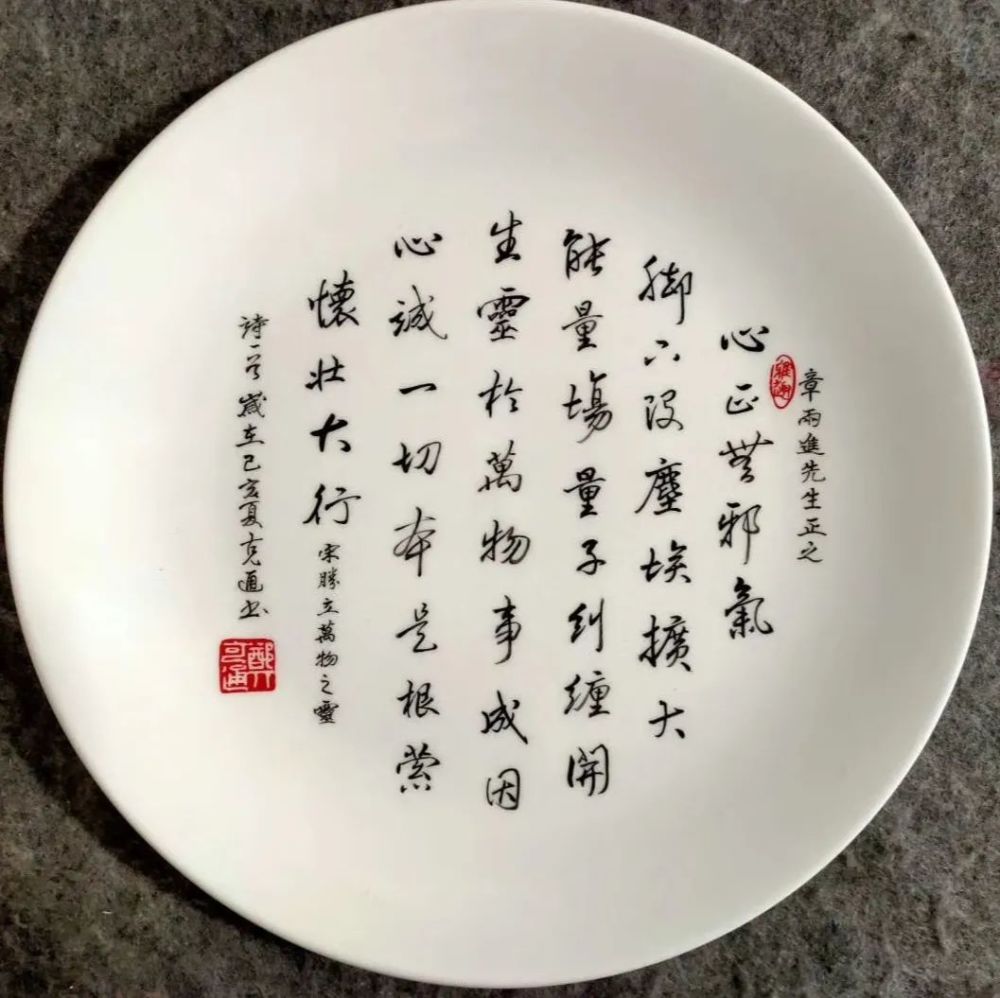 章雨進先生正之
雅謝
心正無邪氣
脚下沒塵埃擴大
能量場量子糾纏開
生靈於萬物事成因
心誠一切本是根縈
懷壯大行 宋勝立萬物之靈
詩一首歲在己亥夏克通书